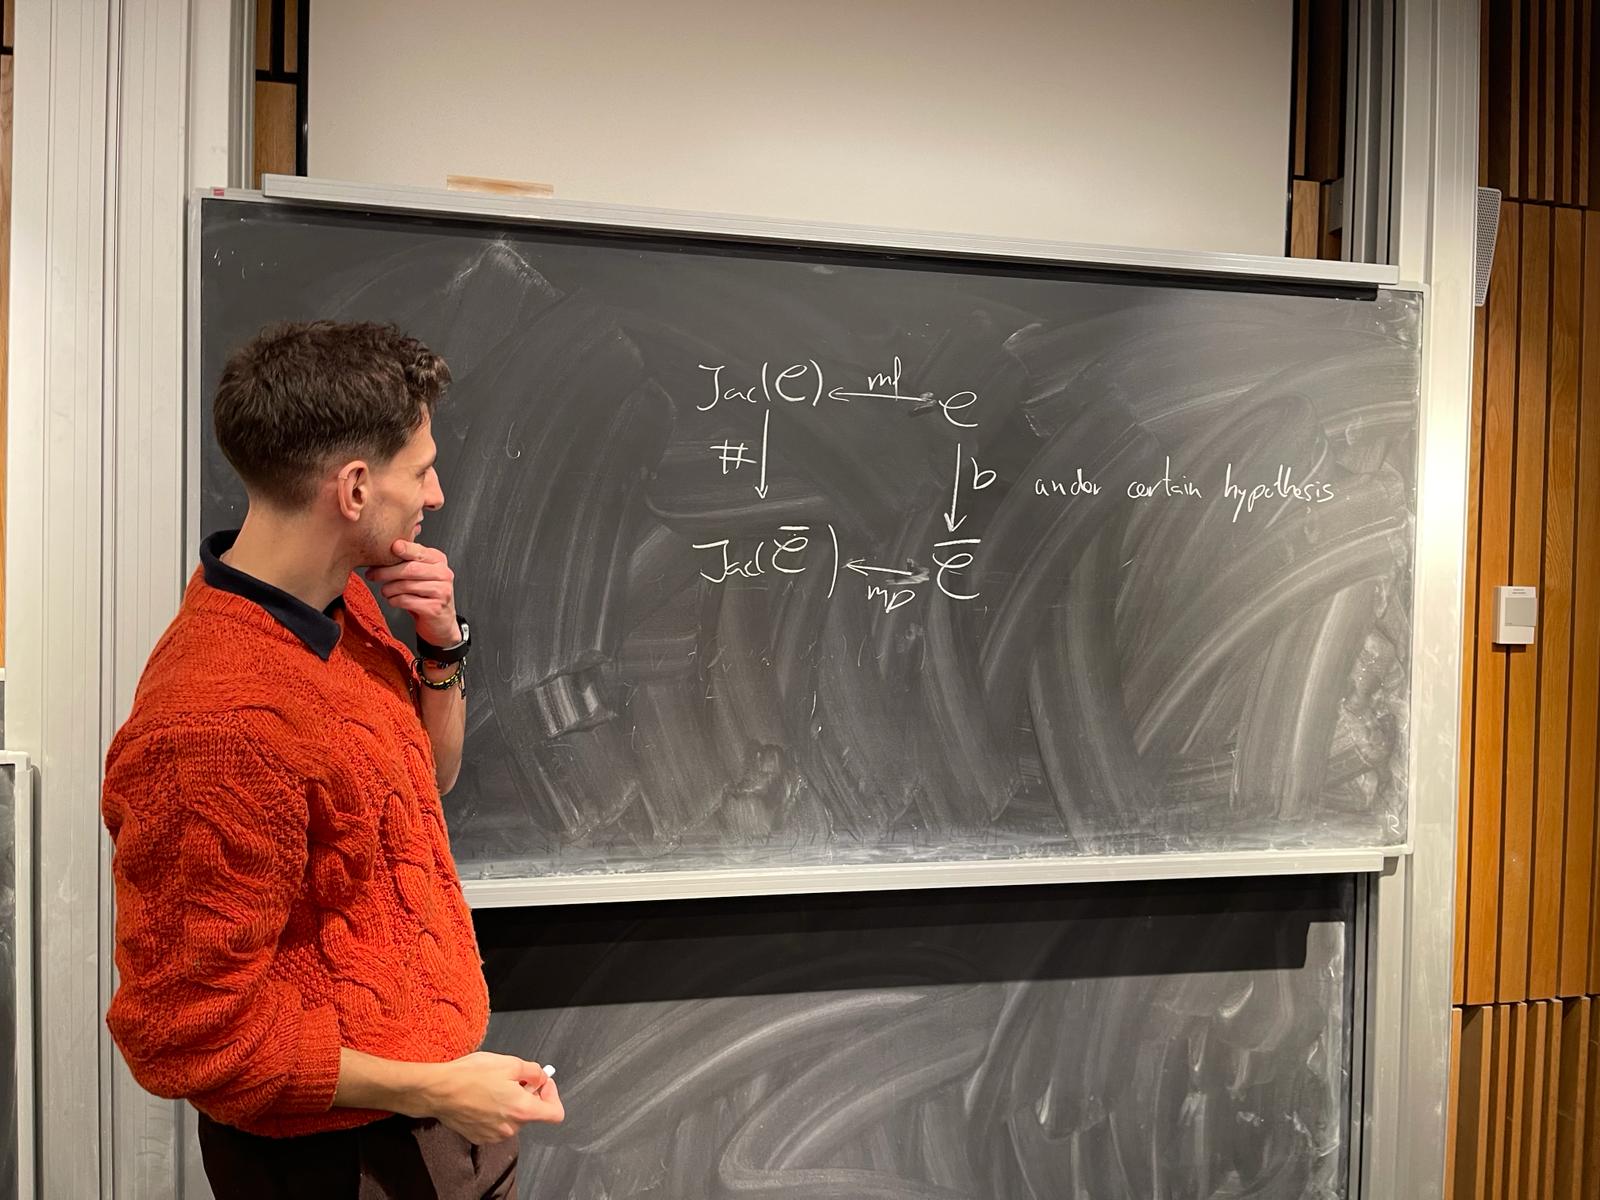 Jac(𝒞) ← mp 𝒞
# ↓ ↓ b under certain hypothesis
Jac(𝒞̄) ← mp 𝒞̄